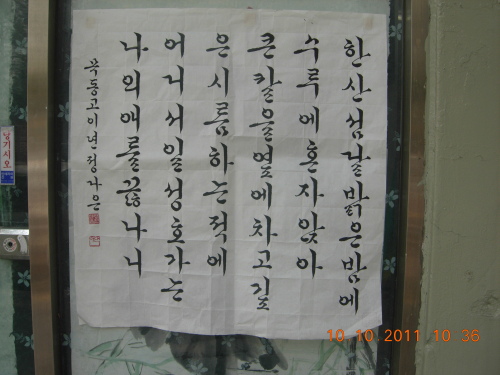 한산섬달밝은밤에
수루에혼자앉아
큰칼을옆에차고깊
은시름하는적에
어디서일성호가는
나의애를끊나니
이년정나은
당기시오
10 10 2011 10 36